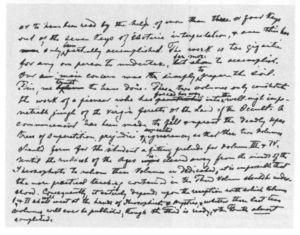 as to have been read by the help of more than three or four keys
out of the seven Keys of Esoteric interpretation, and even this has
only been partially accomplished. The work is too gigantic
for any one person to undertake, far more to accomplish.
Our main concern was simply to prepare the soil.
This, we trust we have done. These two volumes only constitute
the work of a pioneer who has forced his way into the well-nigh impe-
netrable jungle of the virgin forests of the land of the Occult. A
commencement has been made to fell & uproot the deadly upas
trees of superstition, prejudice & ignorance so that these two volumes
should form for the student a fitting prelude for Volumes III & IV.
Until the rubbish of the ages is cleared away from the minds of the
Theosophists to whom these Volumes are dedicated, it is impossible that
the more practical teaching contained in the Third Volume should be under-
stood. Consequently, it entirely depends upon the reception with which Volumes
I & II shall meet at the hands of Theosophists & Mystics, whether these last two
Volumes will ever be published, though the Third is ready, & the fourth almost
completed.